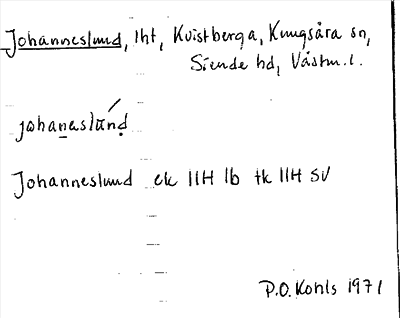 Johanneslund, lht, Kvistberga, Kungsåra sn,
Siende hd, Västm.l.
johaneslúnd
Johanneslund ek 11H 1b tk 11H SV
P.O. Kohls 1971